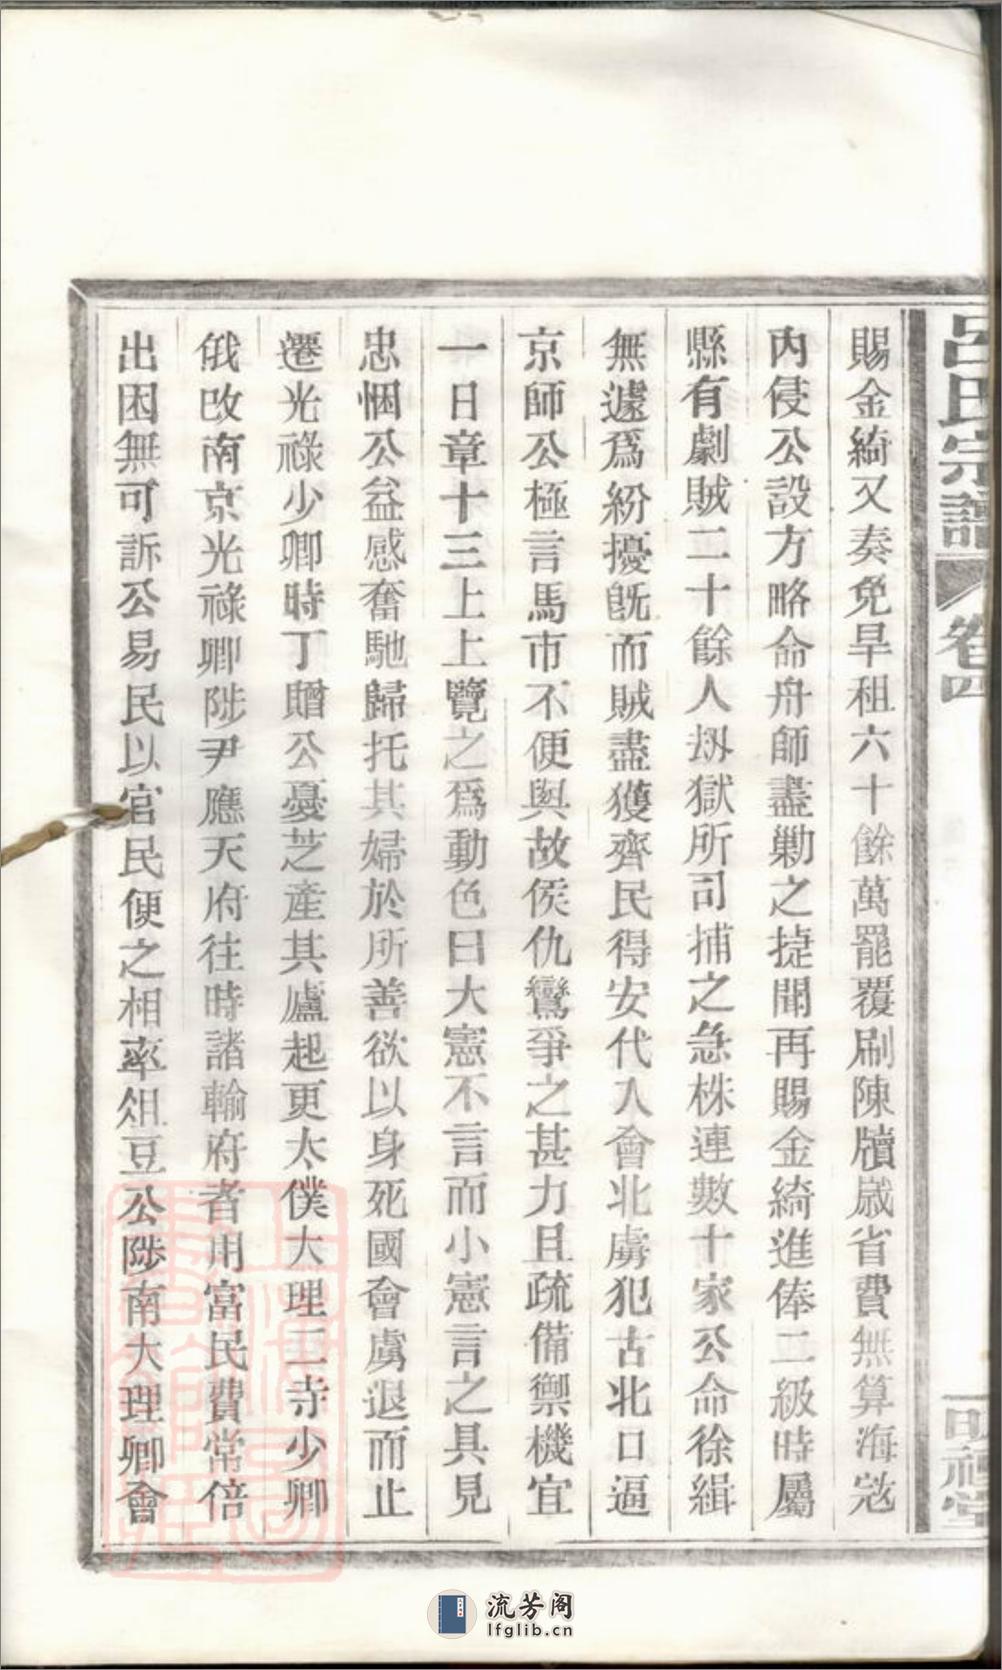 呂氏宗譜 卷四 明禮堂
賜金綺又奏免旱租六十餘萬罷覆刷陳牘歲省費無算海寇
內侵公設方略命舟師盡勦之捷聞再賜金綺進俸二級時屬
縣有劇賊二十餘人刼獄所司捕之急株連數十家公命徐緝
無遽爲紛擾旣而賊盡獲齊民得安代入會北虜犯古北口逼
京師公極言馬市不便與故侯仇鸞爭之甚力且疏備禦機宜
一日章十三上上覽之爲動色曰大憲不言而小憲言之具見
忠悃公益感奮馳歸托其婦於所善欲以身死國會虜退而止
遷光祿少卿時丁贈公憂芝產其廬起更太僕大理二寺少卿
俄改南京光祿卿陟尹應天府往時諸輸府者用富民費常倍
出困無可訴公易民以官民便之相率俎豆公陟南大理卿會
流芳阁
lfglib.cn